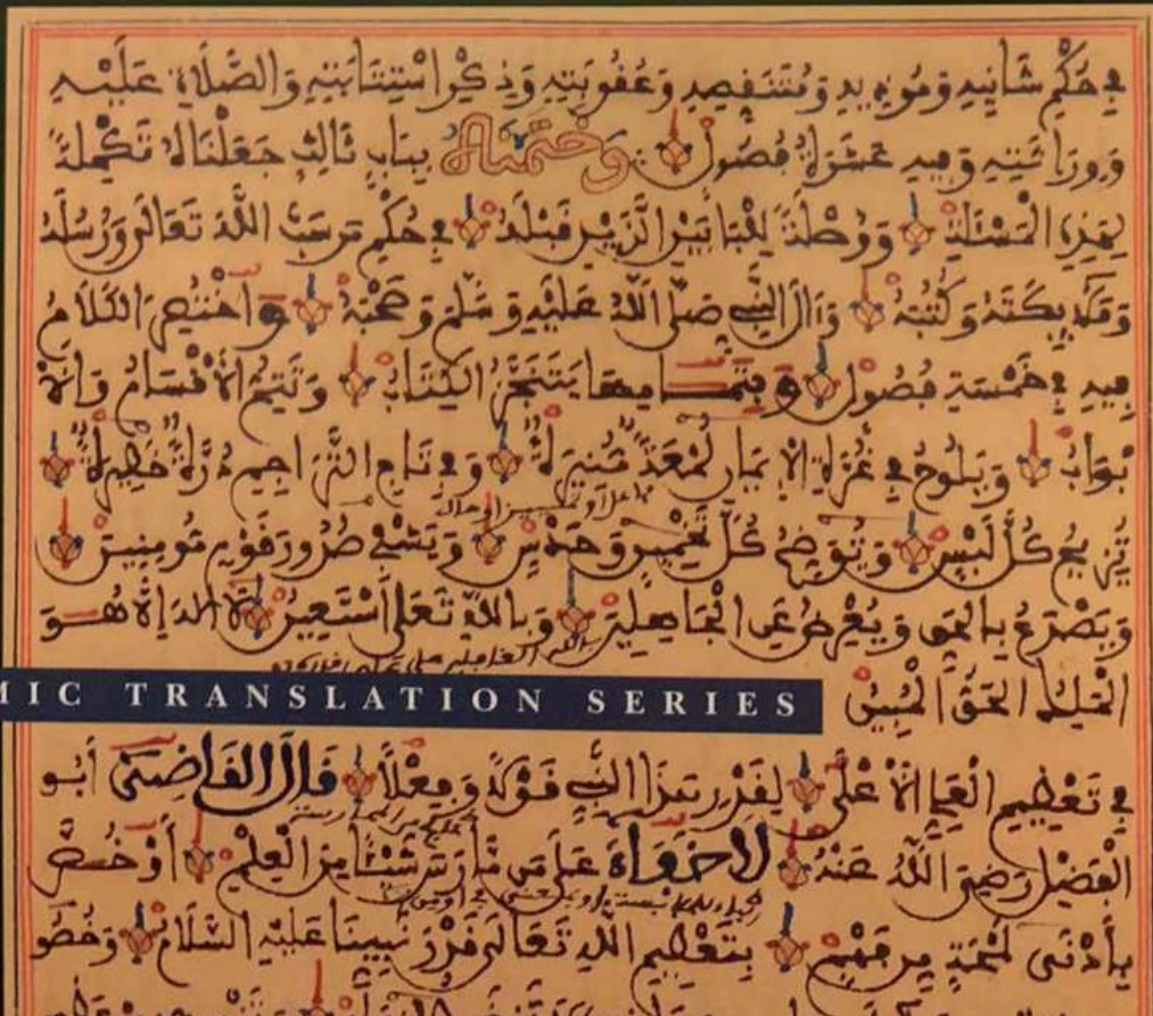 في حُكْمِ شَانِيهِ وَمُوذِيهِ وَمُتَنَقِّصِهِ وَعُقُوبَتِهِ وَذِكْرِ اسْتِتَابَتِهِ وَالصَّلَاةِ عَلَيْهِ
وَوِرَاثَتِهِ وَفِيهِ عَشَرَةُ فُصُولٍ وختمناه بِبَابٍ ثَالِثٍ جَعَلْنَاهُ تَكْمِلَةً
لِهَذِهِ الْمَسْئَلَةِ وَوُصْلَةً لِلْبَابَيْنِ الَّذَيْنِ قَبْلَهُ في حُكْمِ مَن سَبَّ اللَّهَ تَعَالَى وَرُسُلَهُ
وَمَلَائِكَتَهُ وَكُتُبَهُ وَآلَ النَّبِيِّ صَلَّى اللَّهُ عَلَيْهِ وَسَلَّمَ وَصَحْبَهُ وَاخْتُصِرَ الْكَلَامُ
فِيهِ في خَمْسَةِ فُصُولٍ وَبِتَمَامِهَا يَتَنَجَّزُ الْكِتَابُ وَتَتِمُّ الْأَقْسَامُ وَالْأَ
بْوَابُ وَيَلُوحُ في غُرَّةِ الْإِيمَانِ لُمْعَةٌ مُنِيرَةٌ وَفي تَاجِ التَّرَاجِمِ دُرَّةٌ خَطِيرَةٌ
تُزِيحُ كُلَّ لَبْسٍ وَتُوَضِّحُ كُلَّ تَخْمِينٍ وَحَدْسٍ وَتَشْفِي صُدُورَ قَوْمٍ مُومِنِينَ
وَتَصْدَعُ بِالْحَقِّ وَتُعْرِضُ عَنِ الْجَاهِلِينَ وَبِاللَّهِ تَعَلَى أَسْتَعِينُ لَا إِلَهَ إِلَّا هُوَ
الْمَلِكُ الْحَقُّ الْمُبِينُ
MIC TRANSLATION SERIES
في تَعْظِيمِ الْعَلِيِّ الْأَعْلَى لِقَدْرِ هَذَا النَّبِيِّ قَوْلًا وَفِعْلًا قَالَ الْقَاضِي أَبُو
الْفَضْلِ رَضِيَ اللَّهُ عَنْهُ لَا خَفَاءَ عَلَى مَن مَّارَسَ شَيْئًا مِنَ الْعِلْمِ أَوْ خُصَّ
بِأَدْنَى لَمْحَةٍ مِن فَهْمٍ بِتَعْظِيمِ اللَّهِ تَعَالَى قَدْرَ نَبِيِّنَا عَلَيْهِ السَّلَامُ وَخُصُو